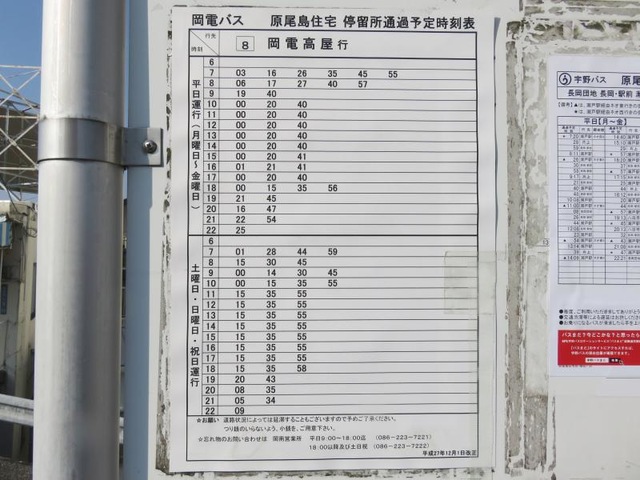 岡電バス 原尾島住宅 停留所通過予定時刻表
行先
時刻
8 岡電高屋 行
平日運行（月曜日～金曜日）
6
7 03 16 26 35 45 55
8 06 17 27 40 57
9 19 40
10 00 20 40
11 00 20 40
12 00 20 40
13 00 20 40
14 00 20 40
15 00 20 41
16 01 21 41
17 00 20 40
18 00 15 35 56
19 21 45
20 16 47
21 22 54
22 25
土曜日・日曜日・祝日運行
6
7 01 28 44 59
8 15 30 45
9 00 14 30 45
10 00 15 35 55
11 15 35 55
12 15 35 55
13 15 35 55
14 15 35 55
15 15 35 55
16 15 35 55
17 15 35 55
18 15 35 58
19 20 43
20 08 35
21 05 34
22 09
★お願い 道路状況によっては延滞することもございますので予めご了承ください。
つり銭のいらないよう、小銭を、ご用意下さい。
☆忘れ物のお問い合わせは 岡南営業所 平日9:00～18:00迄 (086-223-7221)
18:00以降及び土日祝 (086-223-7222)
平成27年12月1日改正
宇野バス 原尾
長岡団地 長岡・駅前
平日【月～金】
バスまだ？今どこかな？と思ったら